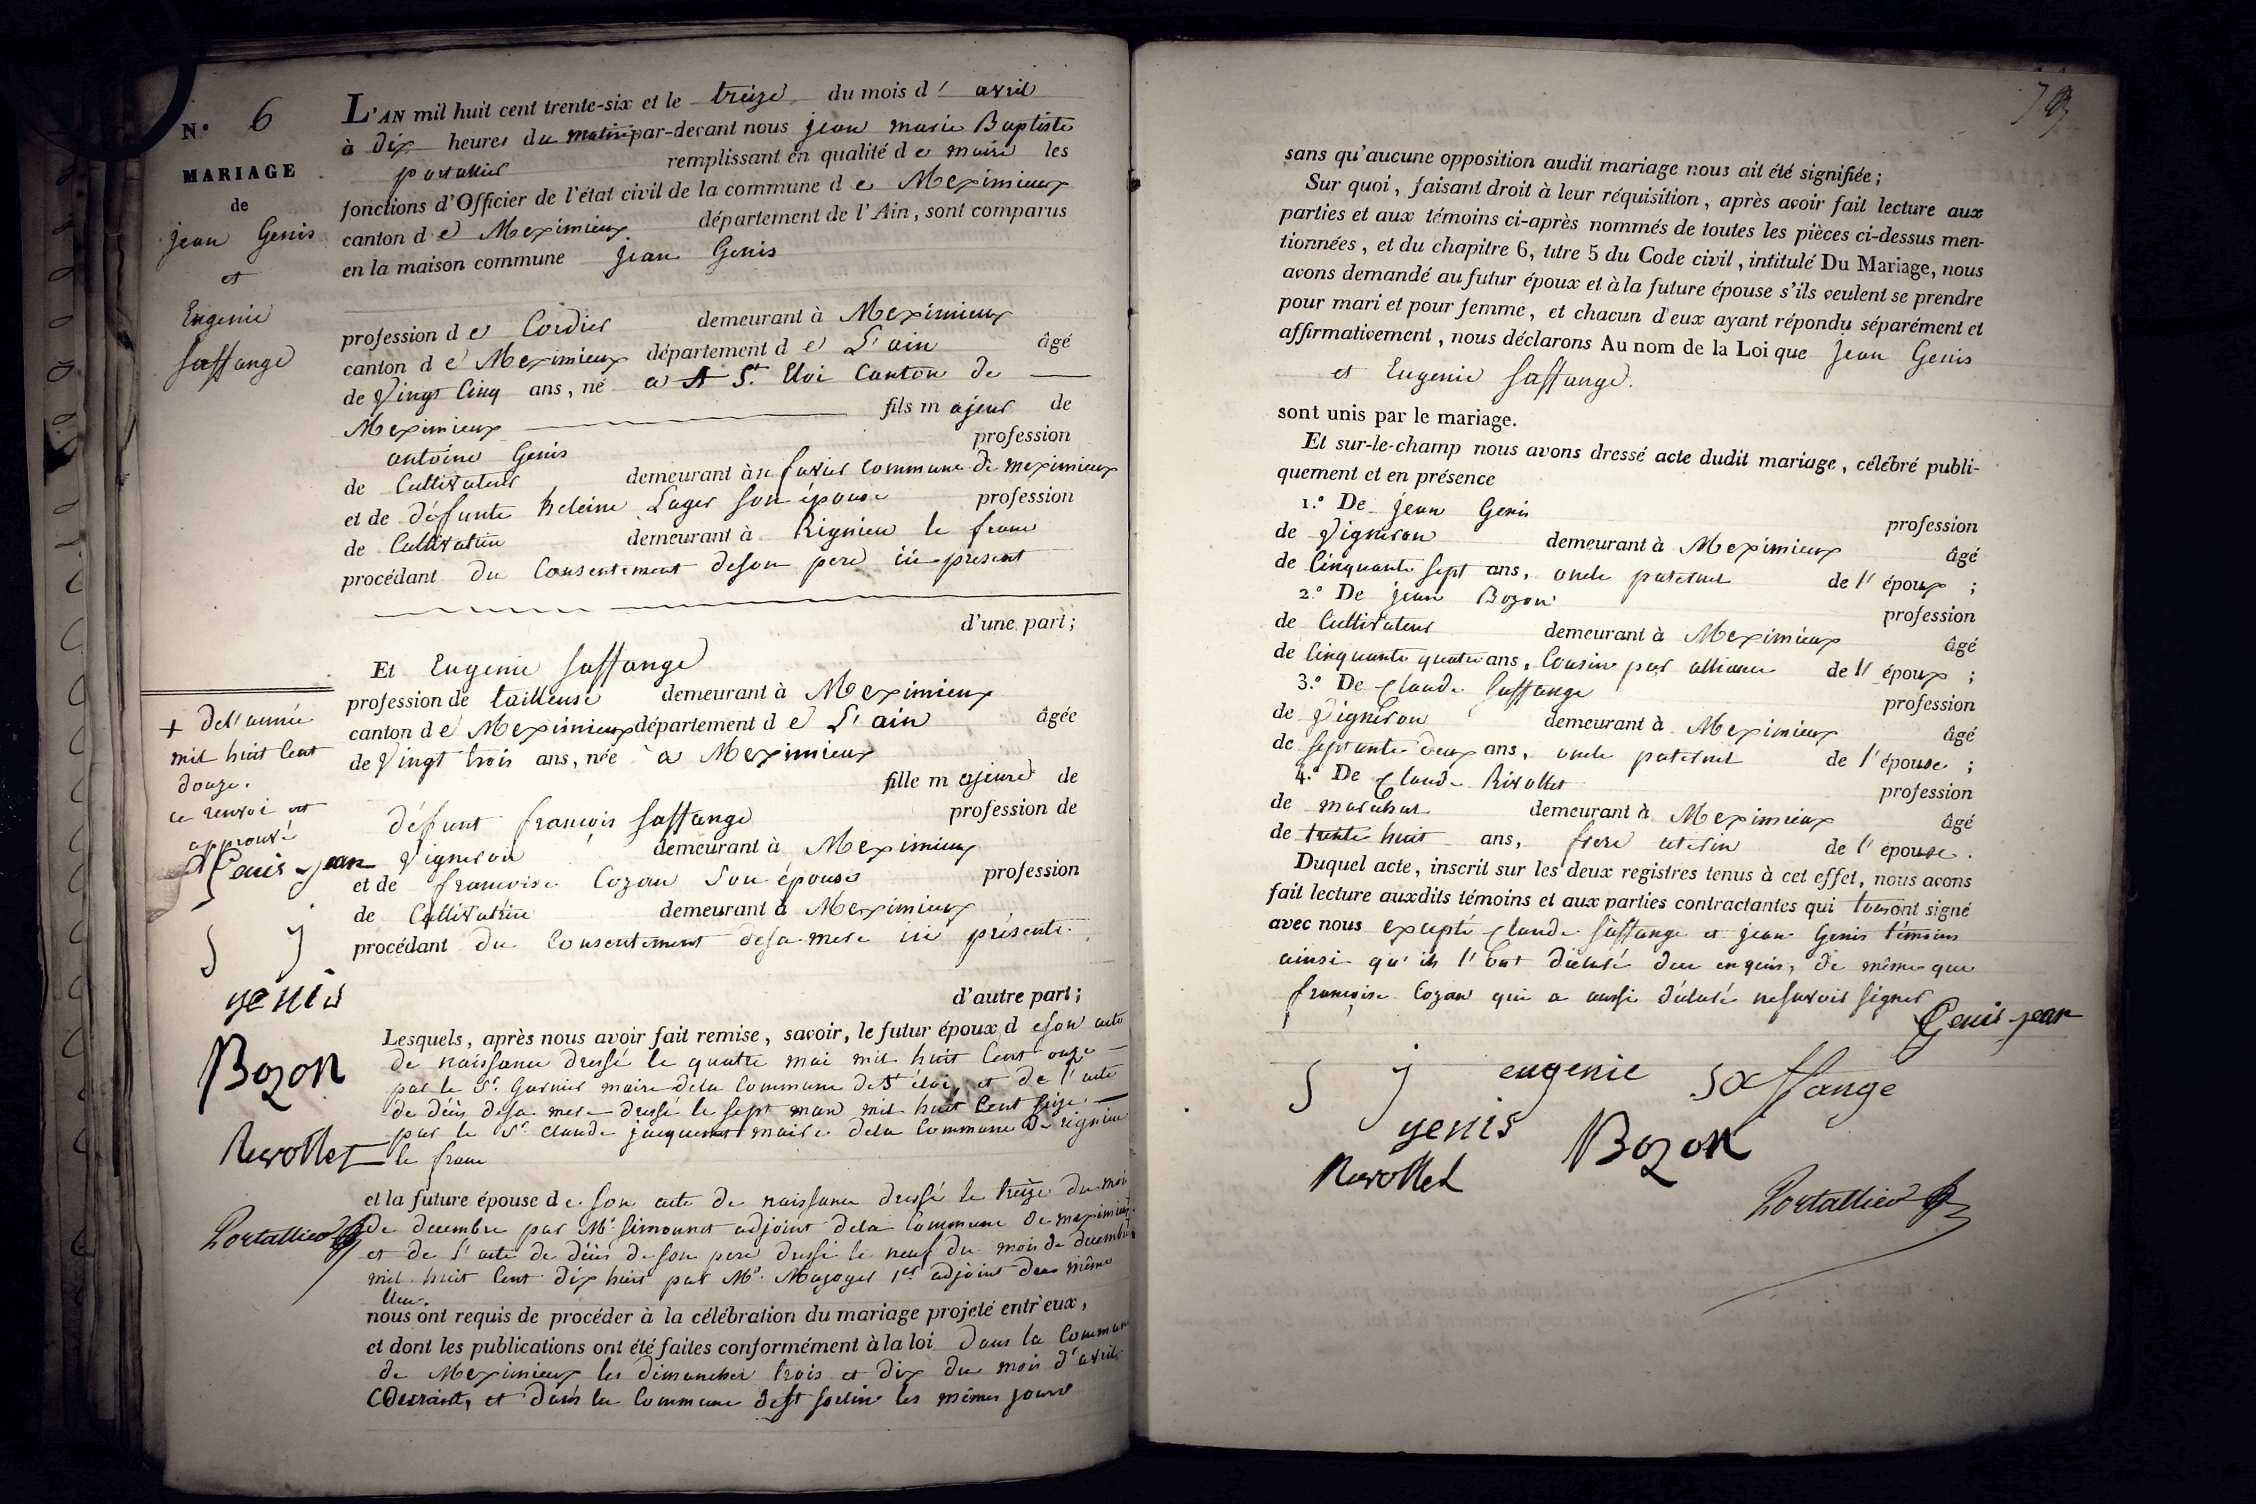 N° 6
MARIAGE
de
jean Genis
et
Eugenie
Saffange
L'AN mil huit cent trente-six et le treize du mois d' avril
à dix heures du matin par-devant nous jean marie Baptiste
portallier remplissant en qualité de maire les
fonctions d'Officier de l'état civil de la commune de Meximieux
canton de Meximieux département de l'Ain, sont comparus
en la maison commune jean Genis
profession de Cordier demeurant à Meximieux
canton de Meximieux département de L'ain âgé
de Vingt Cinq ans, né a St. Eloi Canton de
Meximieux fils majeur de
antoine Genis profession
de Cultivateur demeurant à commune de meximieux
et de défunte heleine Lager son épouse profession
de Cultivatrice demeurant à Rignieu le franc
procédant du Consentement de son pere ici present
d'une part;
Et Eugenie Saffange
profession de tailleuse demeurant à Meximieux
canton de Meximieux département de L'ain âgée
de Vingt trois ans, née a Meximieux
fille majeure de
défunt françois Saffange profession de
Vigneron demeurant à Meximieux
et de francoise Cozan Son épouse profession
de Cultivatrice demeurant à Meximieux
procédant du Consentement de sa mere ici présente
d'autre part;
Lesquels, après nous avoir fait remise, savoir, le futur époux de son acte
de naissance dressé le quatre mai mil huit Cent onze
par le Sr. Garnier maire dela Commune de St éloi, et de l'acte
de décès de sa mere dressé le sept mars mil huit Cent seize
par le Sr. Claude jacquemet maire dela Commune de rignieu
le franc
et la future épouse de son acte de naissance dressé le treize du mois
de decembre par Mr. Simonnet adjoint dela Commune de meximieux
et de l'acte de décès de son pere dressé le neuf du mois de decembre
mil huit Cent dix huit par Mr. Mazoyer 1er adjoint du même
lieu.
nous ont requis de procéder à la célébration du mariage projeté entr'eux,
et dont les publications ont été faites conformément à la loi dans la Commune
de Meximieux les dimanches trois et dix du mois d'avril
Courant, et dans la Commune de St les mêmes jours
+ de l'année
mil huit Cent
douze.
ce renvoi est
approuvé
Genis jean
S J
genis
Bozon
Revollet
Portallier
sans qu'aucune opposition audit mariage nous ait été signifiée;
Sur quoi, faisant droit à leur réquisition, après avoir fait lecture aux
parties et aux témoins ci-après nommés de toutes les pièces ci-dessus men-
tionnées, et du chapitre 6, titre 5 du Code civil, intitulé Du Mariage, nous
avons demandé au futur époux et à la future épouse s'ils veulent se prendre
pour mari et pour femme, et chacun d'eux ayant répondu séparément et
affirmativement, nous déclarons Au nom de la Loi que Jean Genis
et Eugenie Saffange.
sont unis par le mariage.
Et sur-le-champ nous avons dressé acte dudit mariage, célébré publi-
quement et en présence
1.° De jean Genis profession
de Vigneron demeurant à Meximieux âgé
de Cinquante sept ans, oncle paternel de l'époux;
2.° De jean Bozon profession
de Cultivateur demeurant à Meximieux âgé
de Cinquante quatre ans, Cousin par alliance de l'époux;
3.° De Claude Saffange profession
de Vigneron demeurant à Meximieux âgé
de septante deux ans, oncle paternel de l'épouse;
4.° De Claude Rivollet profession
de maréchal demeurant à Meximieux âgé
de trente huit ans, frere uterin de l'épouse.
Duquel acte, inscrit sur les deux registres tenus à cet effet, nous avons
fait lecture auxdits témoins et aux parties contractantes qui tous ont signé
avec nous excepté Claude Saffange et jean Genis témoins
ainsi qu'ils l'ont déclaré de même que
françoise Cozan qui a aussi déclaré ne savoir signer
Genis jean
S J eugenie saffange
genis Bozon
Revollet
Portallier